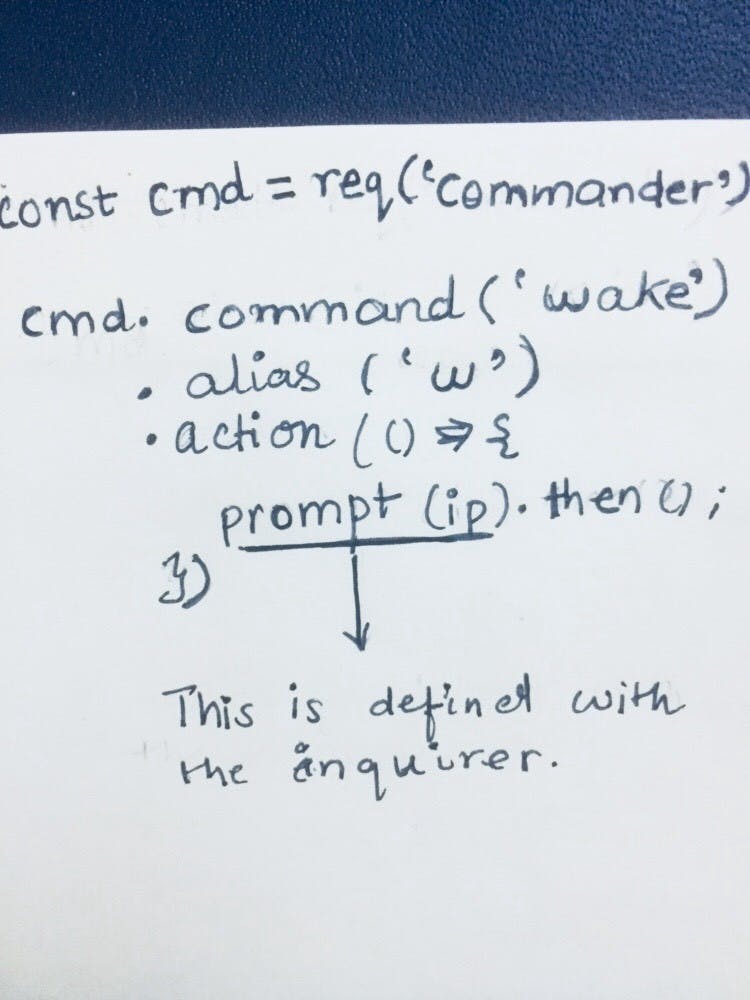 const cmd = req('commander')
cmd. command ('wake')
. alias ('w')
. action (() => {
prompt (ip). then ();
})
This is defined with
the inquirer.